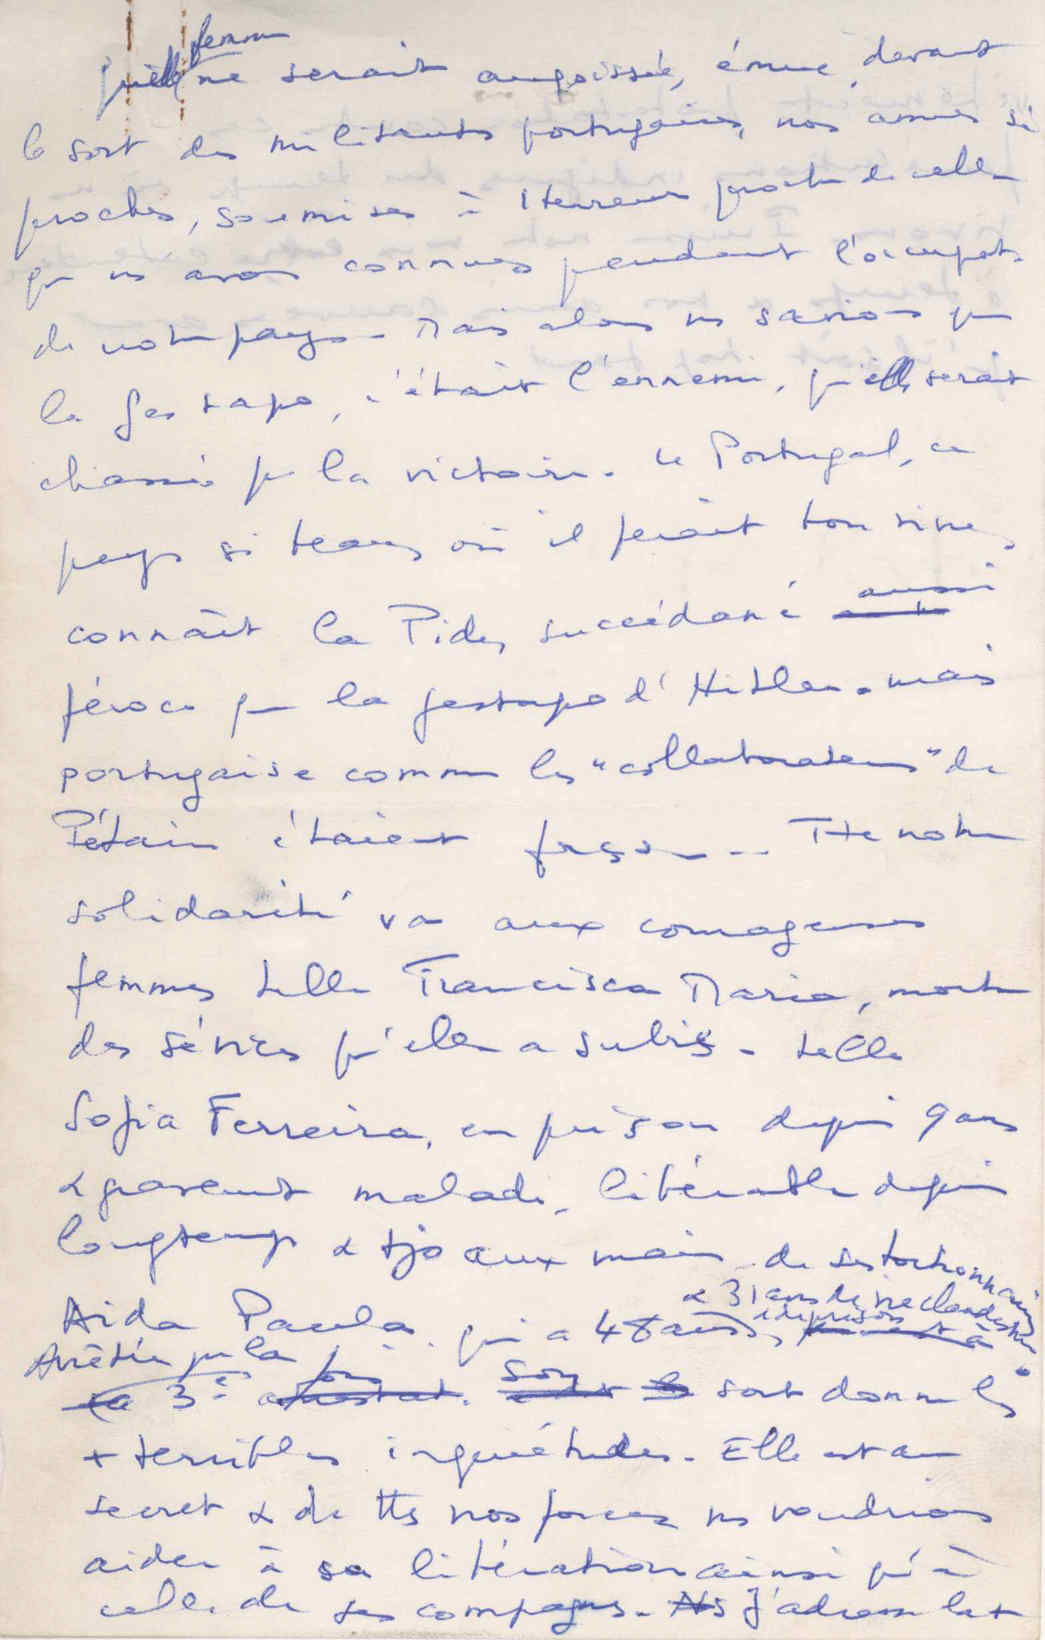 femme
Quelle ne serait angoissée, émue, devant
le sort des militantes portugaises, nos amies si
proches, soumises à l'terreur proche de celle
que ns avons connues pendant l'occupat.
de notre pays. Mais alors ns savions que
la Gestapo, c'était l'ennemi, qu'elle serait
chassée par la victoire. Le Portugal, ce
pays si beau, où il ferait bon vivre,
connaît la Pide, succédané
aussi
féroce que la gestapo d'Hitler. mais
portugaise comme les "collaborateurs" de
Pétain étaient français. Tte notre
solidarité va aux courageuses
femmes telle Francisca Maria, morte
des sévices qu'elle a subis. telle
Sofia Ferreira, en prison depuis 9 ans
& gravement malade, libérable depuis
longtemps & tjs aux mains de ses tortionnaires
Aida Paula qui a 48 ans,
& 31 ans de vie clandestine
& de prison.
Arrêtée pr la
3e fois. Son sort donne les
+ terribles inquiétudes. Elle est au
secret & de ttes nos forces ns voudrions
aider à sa libération ainsi qu'à
celle de ses compagnes. J'adresse let